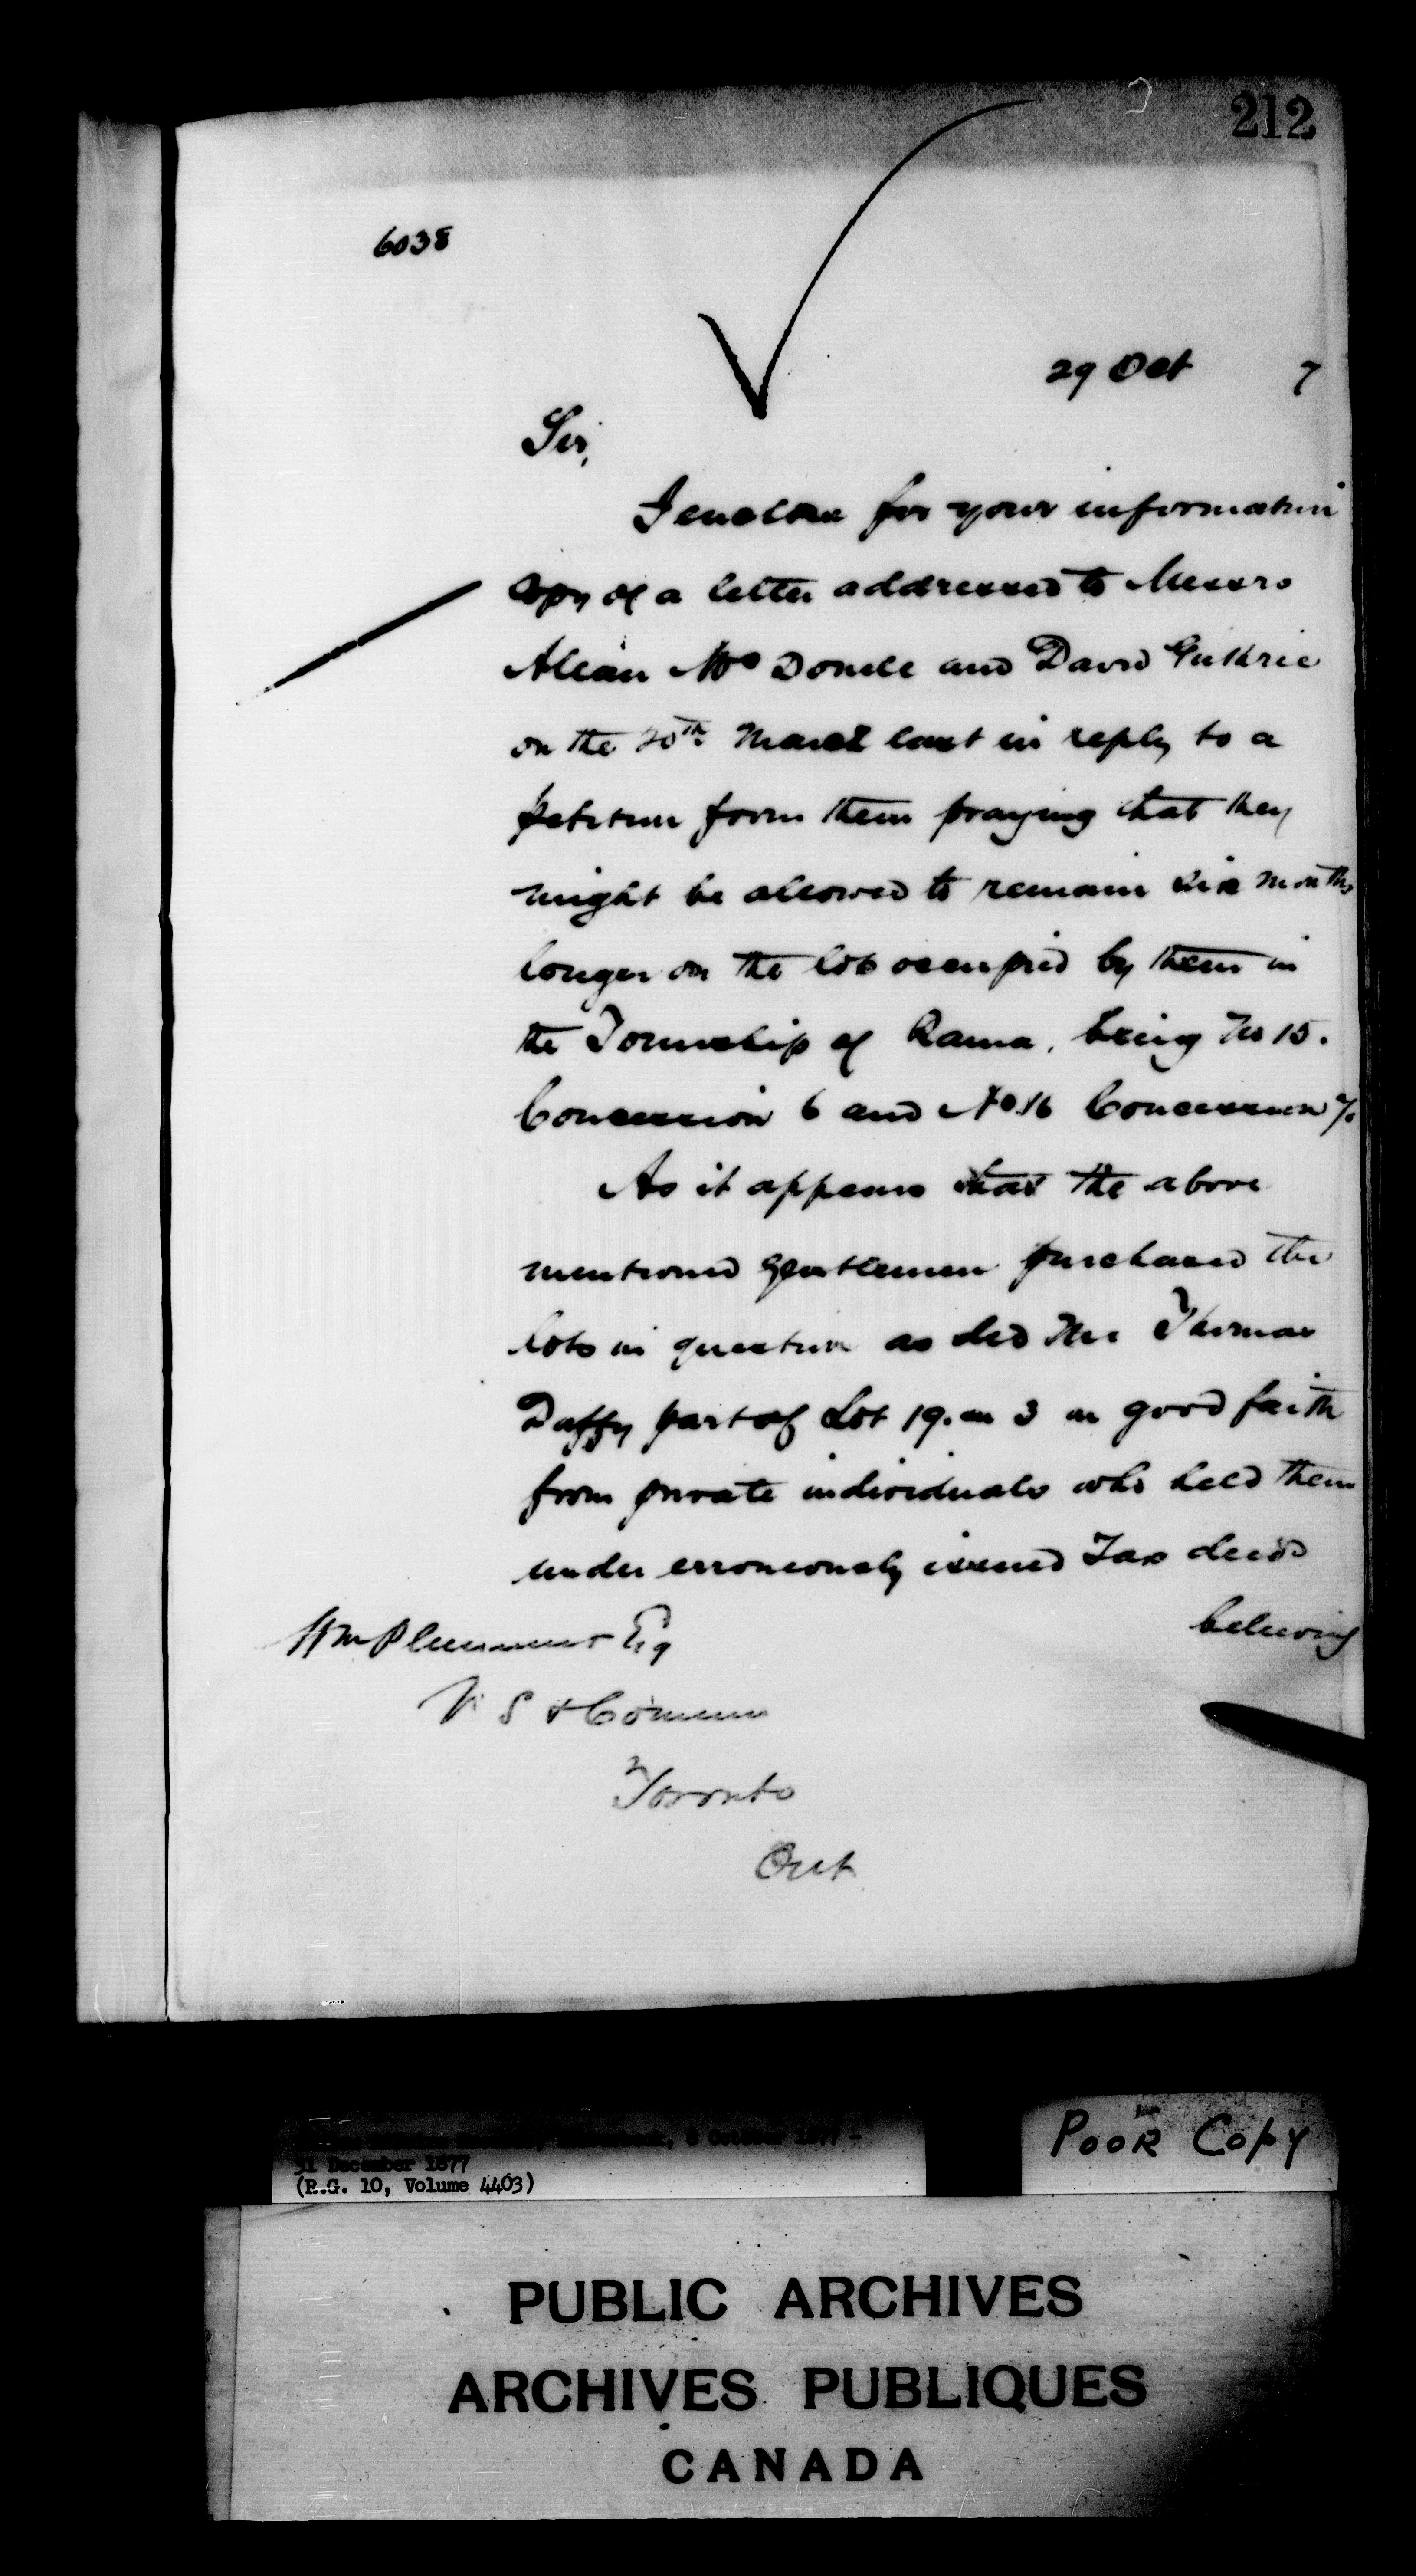 212
6038
29 Oct 7
Sir,
I enclose for your information
copy of a letter addressed to Messrs
Allan Mc Donell and David Guthrie
on the 20th March last in reply to a
petition from them praying that they
might be allowed to remain six months
longer on the lots occupied by them in
the Township of Rama, being No 15.
Concession 6 and No 16 Concession 7.
As it appears that the above
mentioned gentlemen purchased the
lots in question as did Mr Thomas
Duffy part of Lot 19. in 3 in good faith
from private individuals who held them
under erroneously issued Tax deeds
believing
Wm Plummer Esq
V. S & Commr
Toronto
Ont
8 October 1877 -
31 December 1877
(R.G. 10, Volume 4403)
POOR COPY
PUBLIC ARCHIVES
ARCHIVES PUBLIQUES
CANADA